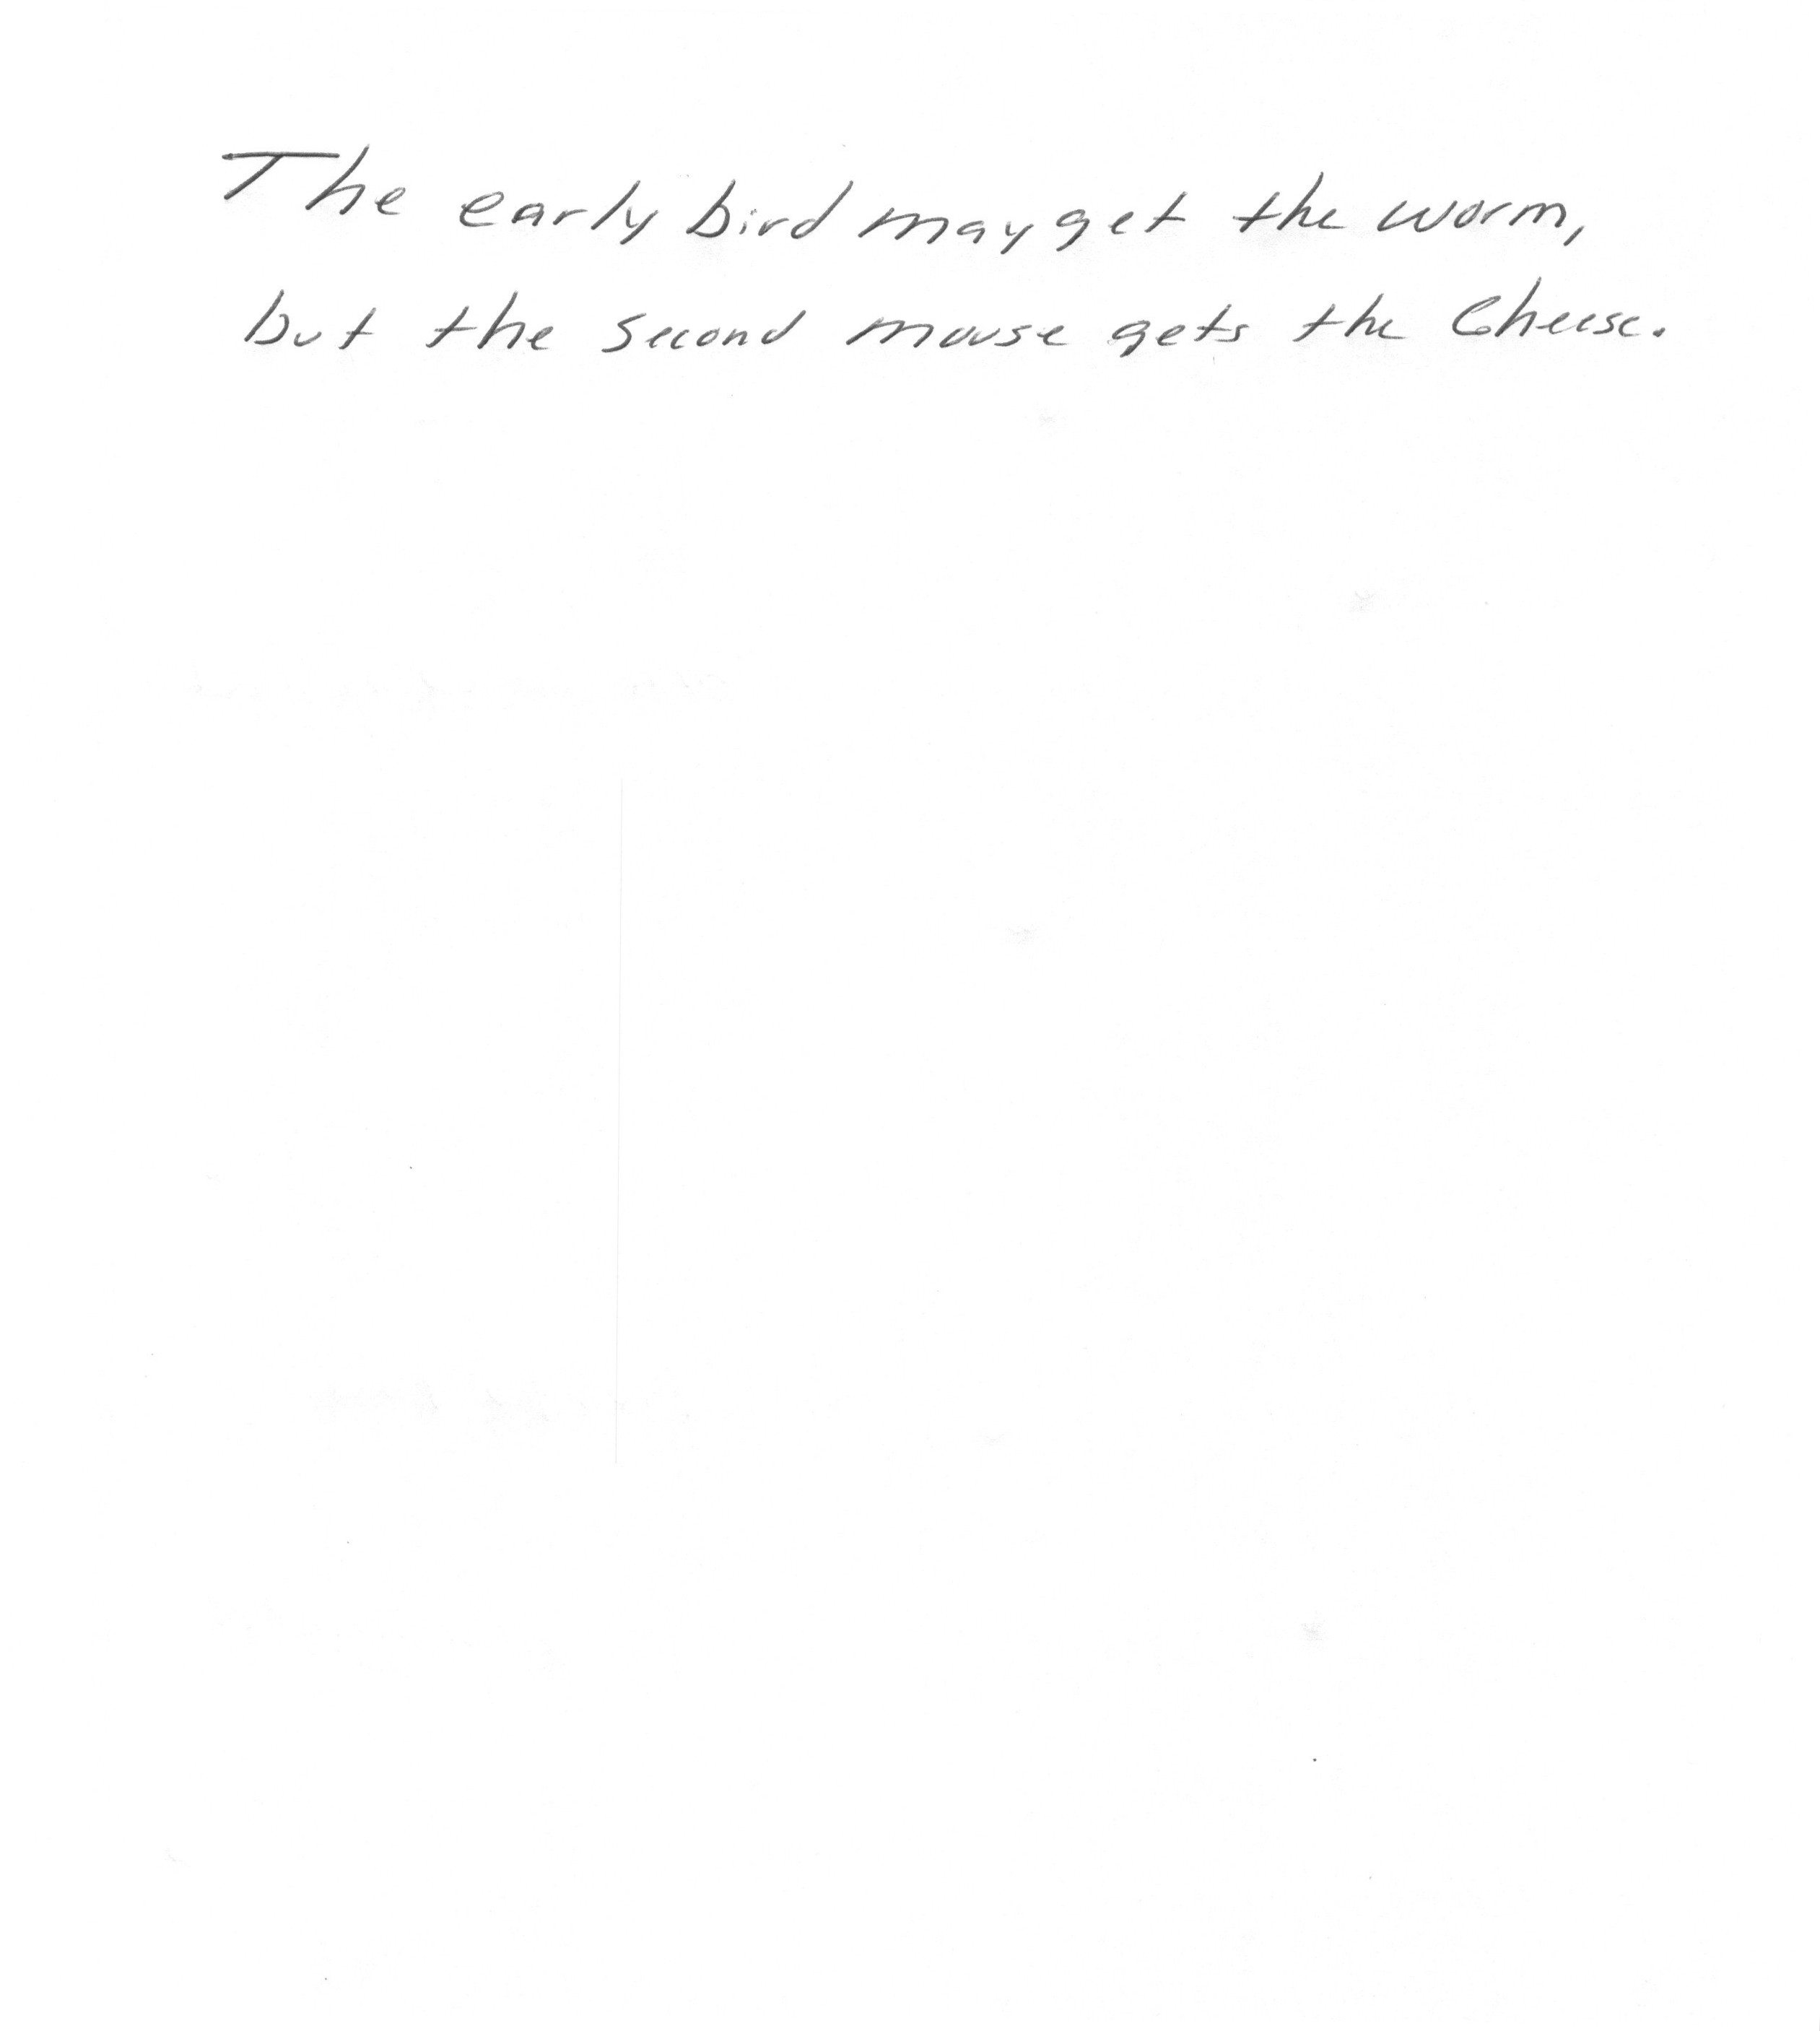 The early bird may get the worm,
but the second mouse gets the Cheese.